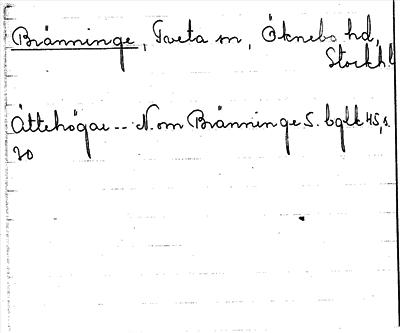 Bränninge, Tveta sn, Öknebo hd,
Stockh.l
Ättehögar -- N. om Bränninge S. bglk 45, s.
20